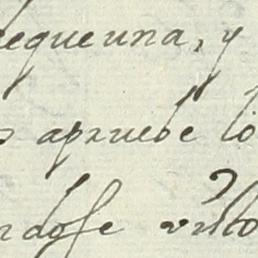 requena, y
apruebe lo
ndose visto